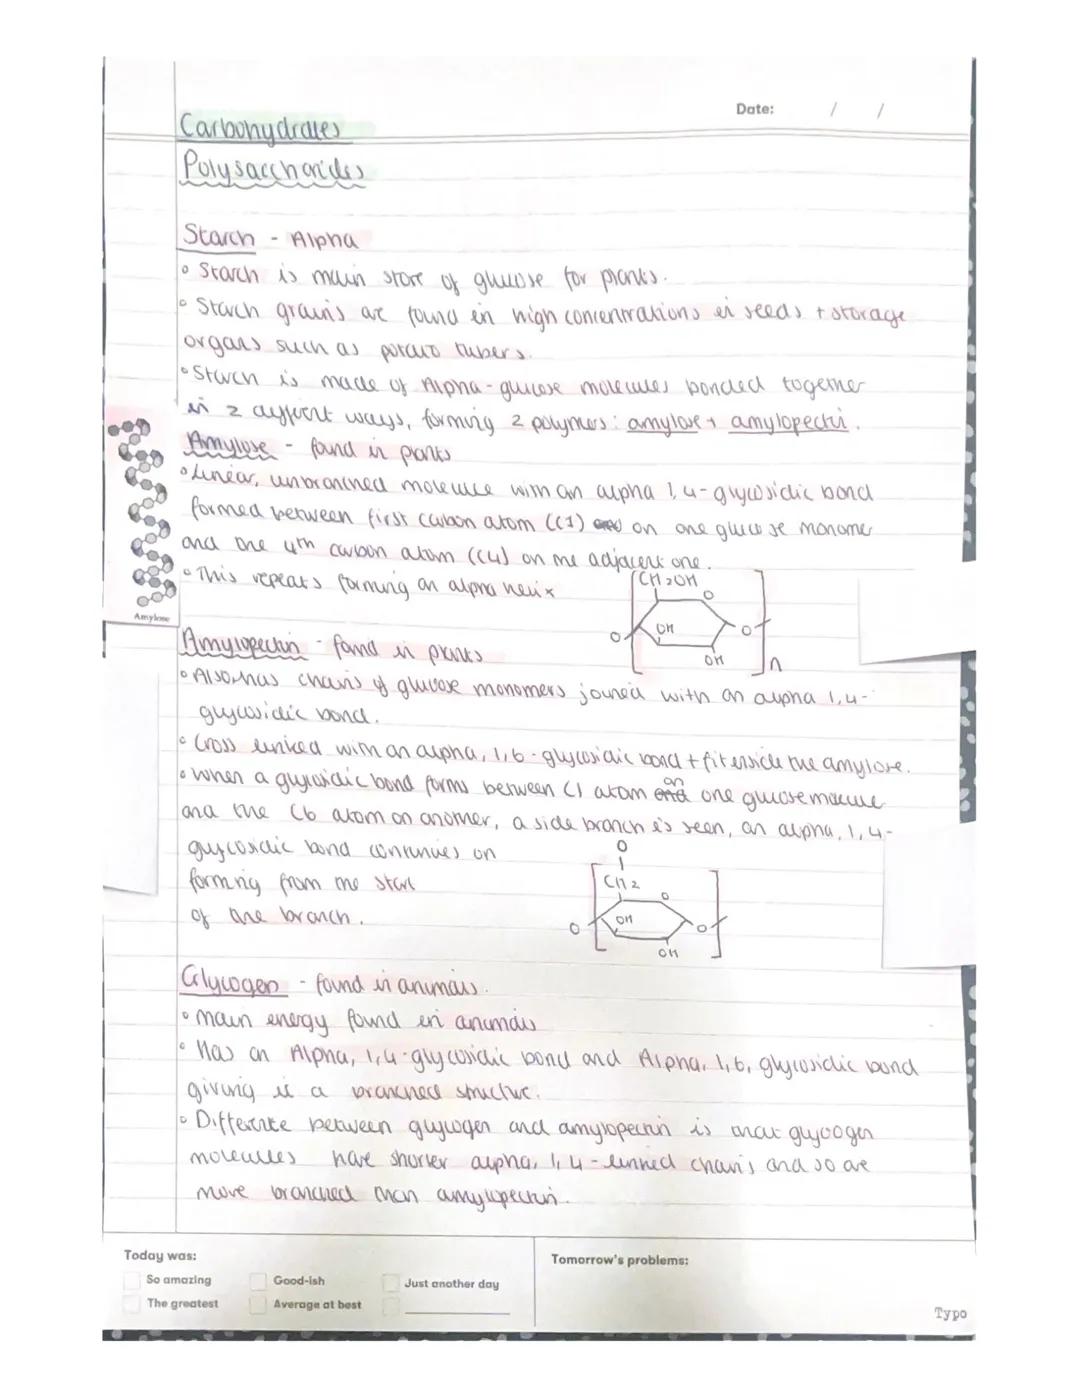 Date: / /
Carbohydrates
Polysaccharides
Starch - Alpha
Starch is main store of glucose for plants.
Starch grains are found in high concentrations in seeds + storage
organs such as potato tubers.
Starch is made of Alpha-glucose molecules bonded together
in 2 different ways, forming 2 polymers: amylose + amylopectin.
Amylose - found in plants
Linear, unbranched molecule with an alpha 1,4-glycosidic bond
formed between first carbon atom (C1) on one glucose monomer
and the 4th carbon atom (C4) on the adjacent one.
This repeats forming an alpha helix
Amylose
CH2OH
O
OH
O
O
OH
n
Amylopectin - found in plants
Also has chains of glucose monomers joined with an alpha 1,4-
glycosidic bond.
Cross linked with an alpha, 1,6-glycosidic bond + fit inside the amylose.
When a glycosidic bond forms between C1 atom on one glucose molecule
and the C6 atom on another, a side branch is seen, an alpha, 1,4-
glycosidic bond continues on
forming from the start
of the branch.
O
CH2
O
OH
O
O
OH
Glycogen - found in animals.
Main energy found in animals
Has an Alpha, 1,4-glycosidic bond and Alpha, 1,6, glycosidic bond
giving it a branched structure.
Difference between glycogen and amylopectin is that glycogen
molecules have shorter alpha, 1,4-linked chains and so are
more branched than amylopectin.
Today was:
So amazing
Good-ish
Just another day
The greatest
Average at best
Tomorrow's problems:
Typo